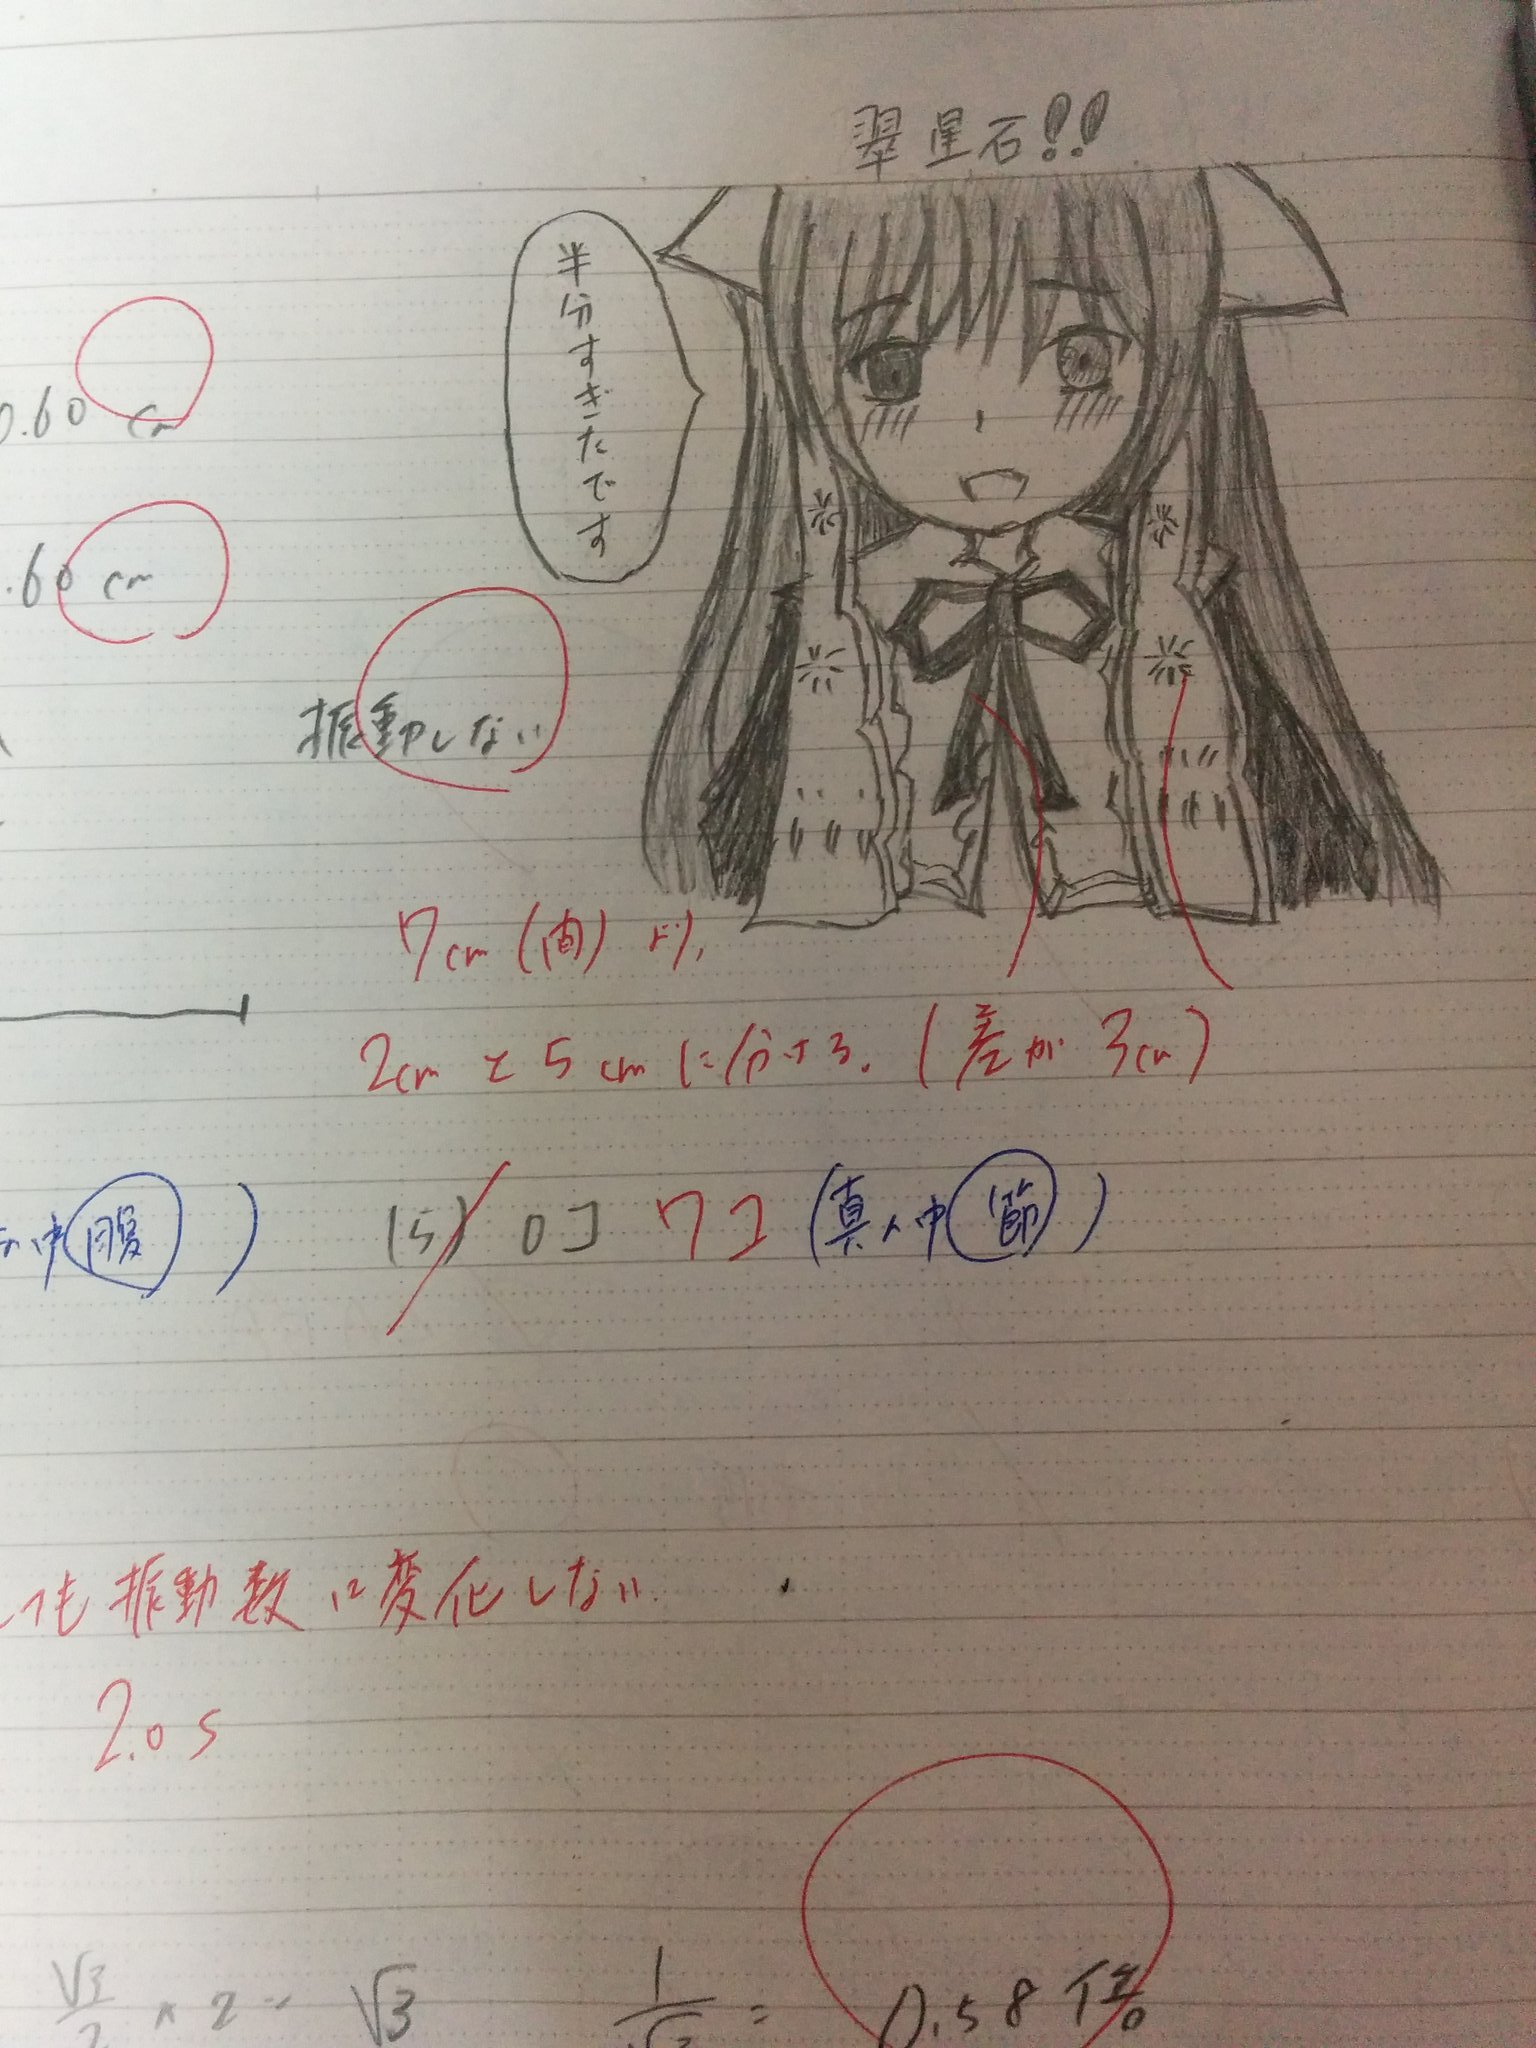 翠星石!!
半分すぎたです
0.60 cm
.60 cm
振動しない
7cm (間) より,
2cm と 5cm に分ける. (差が 3cm)
中 腹 )
(5) 0コ 7コ (真ん中 節 )
ても振動数は変化しない.
2.0 s
√3/2 × 2 = √3
1/√3 = 0.58 倍